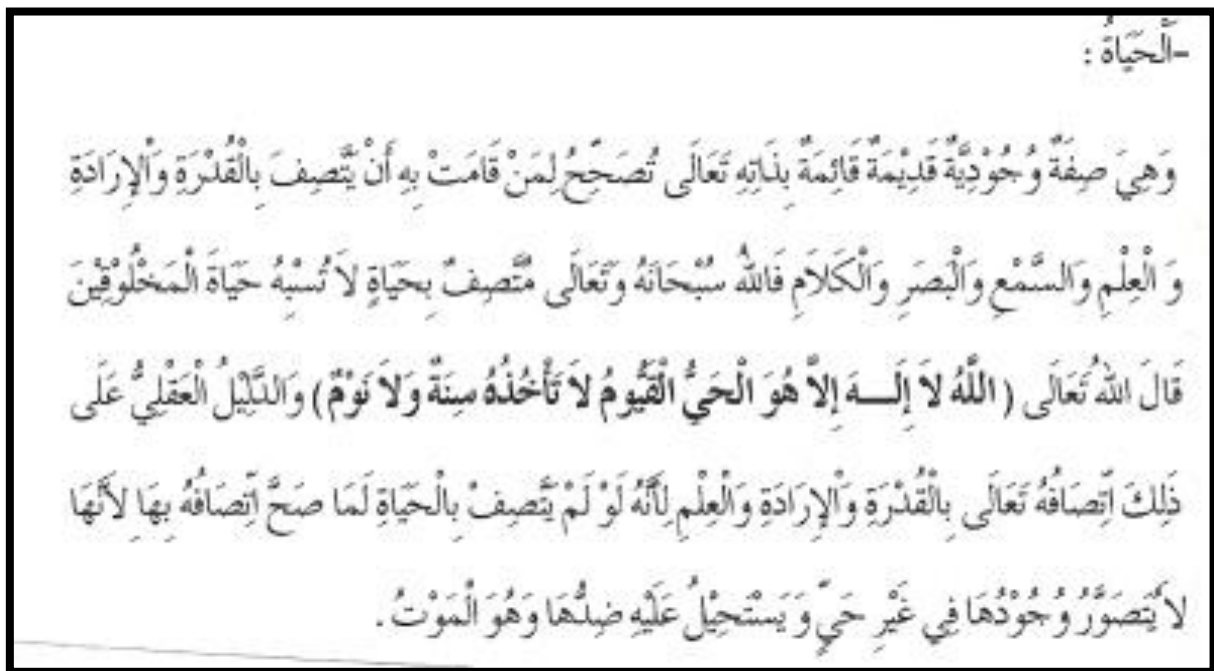 -اَلْحَيَاةُ :
وَهِيَ صِفَةٌ وُجُوْدِيَّةٌ قَدِيْمَةٌ قَائِمَةٌ بِذَاتِهِ تَعَالَى تُصَحِّحُ لِمَنْ قَامَتْ بِهِ أَنْ يَّتَّصِفَ بِالْقُدْرَةِ وَاْلإِرَادَةِ
وَ الْعِلْمِ وَالسَّمْعِ وَالْبَصَرِ وَالْكَلاَمِ فَاللهُ سُبْحَانَهُ وَتَعَالَى مُتَّصِفٌ بِحَيَاةٍ لاَ تُسْبِهُ حَيَاةَ الْمَخْلُوْقِيْنَ
قَالَ اللهُ تَعَالَى ( اللَّهُ لاَ إِلَـــهَ إِلاَّ هُوَ الْحَيُّ الْقَيُّومُ لاَ تَأْخُذُهُ سِنَةٌ وَلاَ نَوْمٌ ) وَالدَّلِيْلُ الْعَقْلِيُّ عَلَى
ذَلِكَ اِتِّصَافُهُ تَعَالَى بِالْقُدْرَةِ وَاْلإِرَادَةِ وَالْعِلْمِ لِأَنَّهُ لَوْ لَمْ يَتَّصِفْ بِالْحَيَاةِ لَمَا صَحَّ اِتِّصَافُهُ بِهَا لأَنَّهَا
لاَ يُتَصَوَّرُ وُجُوْدُهَا فِي غَيْرِ حَيٍّ وَ يَسْتَحِيْلُ عَلَيْهِ ضِدُّهَا وَهُوَ الْمَوْتُ .